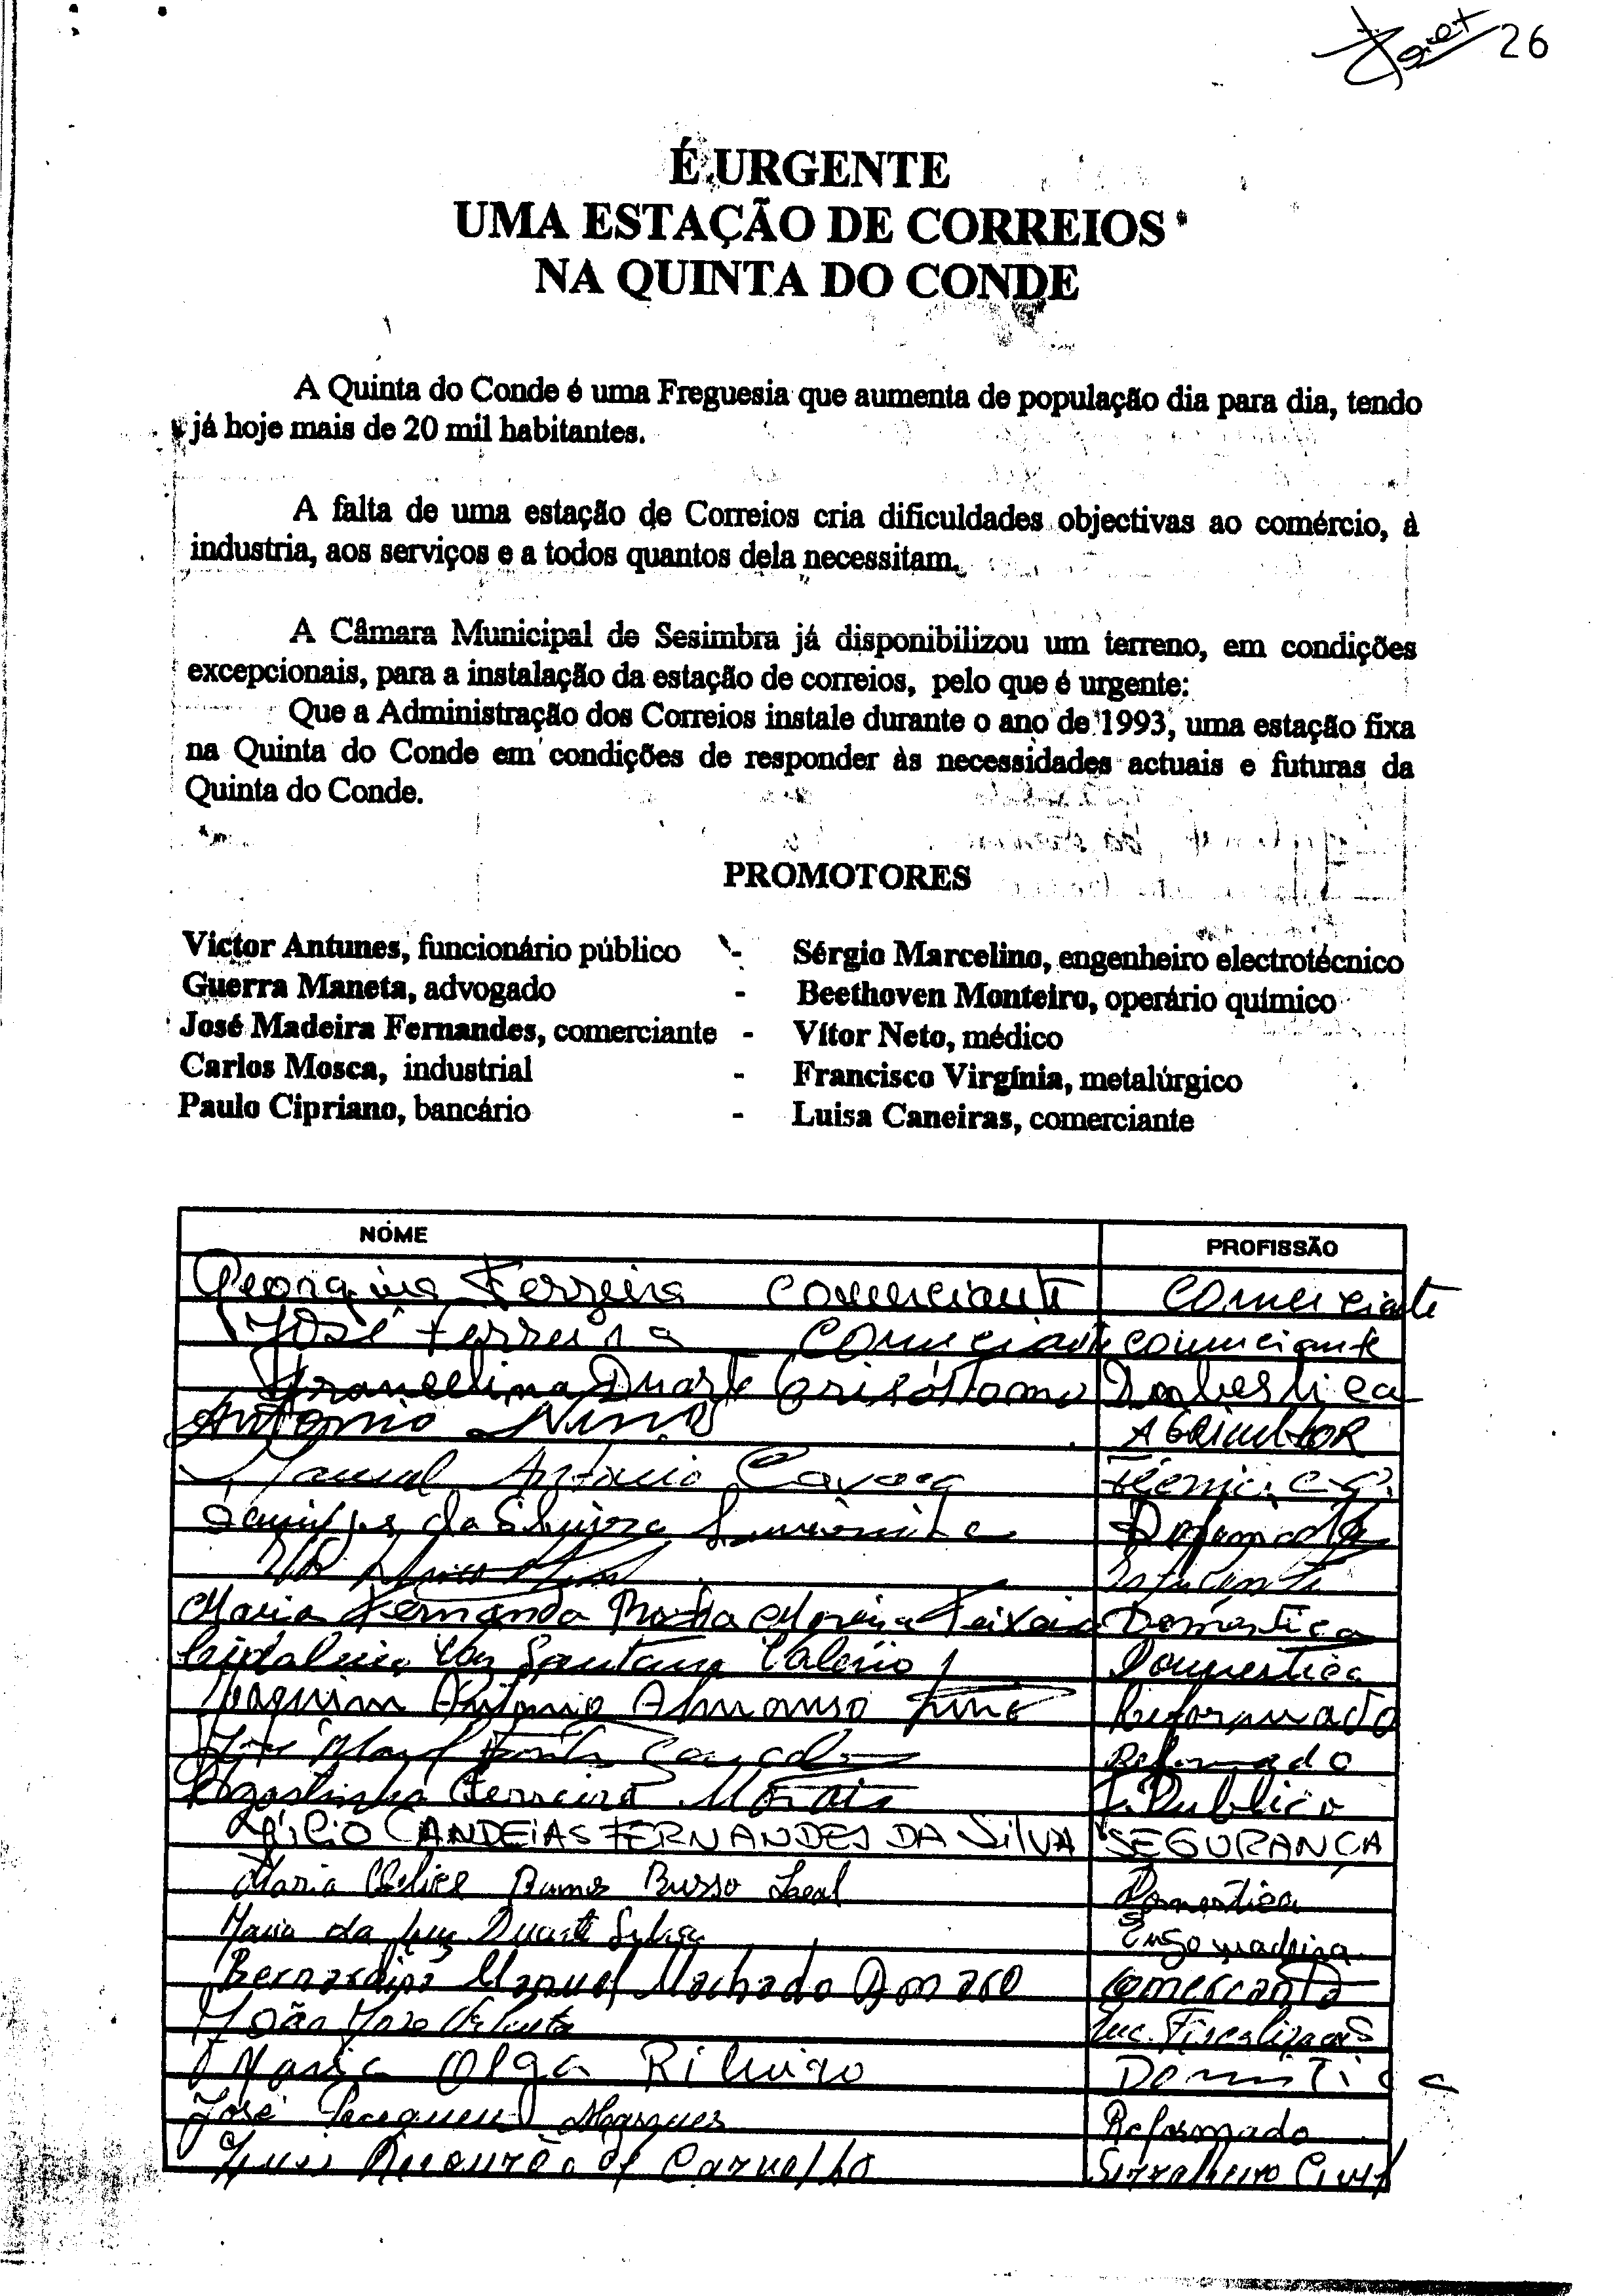 26
É URGENTE
UMA ESTAÇÃO DE CORREIOS
NA QUINTA DO CONDE
A Quinta do Conde é uma Freguesia que aumenta de população dia para dia, tendo
já hoje mais de 20 mil habitantes.
A falta de uma estação de Correios cria dificuldades objectivas ao comércio, à
industria, aos serviços e a todos quantos dela necessitam.
A Câmara Municipal de Sesimbra já disponibilizou um terreno, em condições
excepcionais, para a instalação da estação de correios, pelo que é urgente:
Que a Administração dos Correios instale durante o ano de 1993, uma estação fixa
na Quinta do Conde em condições de responder às necessidades actuais e futuras da
Quinta do Conde.
PROMOTORES
Victor Antunes, funcionário público - Sérgio Marcelino, engenheiro electrotécnico
Guerra Maneta, advogado - Beethoven Monteiro, operário químico
José Madeira Fernandes, comerciante - Vítor Neto, médico
Carlos Mosca, industrial - Francisco Virgínia, metalúrgico
Paulo Cipriano, bancário - Luisa Caneiras, comerciante
NOME PROFISSÃO
Georgina Ferreira comerciante comerciante
José Ferreira comerciante comerciante
Francelina Duarte Crisóstomo Doméstica
António Nuno Agricultor
Manuel António
da Silveira Reformada
Estudante
Maria Fernanda Moreira Teixeira Doméstica
Santana Valério Doméstica
Joaquim António Reformado
Reformado
Agostinho Ferreira Morais F. Publico
CANDEIAS FERNANDES DA SILVA SEGURANÇA
Maria Ramos Busso Leal Domestica
Maria da Luz Duarte Engomadeira
Bernardino Manuel Machado Amaro comerciante
João Fiscalização
Maria Olga Ribeiro Domestica
José Marques Reformado
Luis de Carvalho Serralheiro Civil